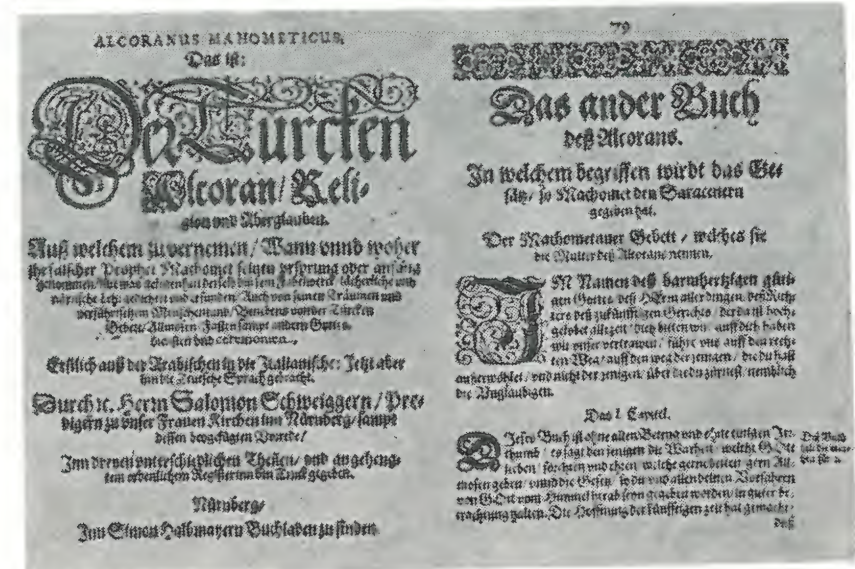 ALCORANUS MAHOMETICUS,
Das ist:
Der Turcken
Alcoran/ Reli-
gion und Aberglauben.
Auß welchem zuvernemen/ Wann unnd woher
ihr falscher Prophet Machomet seinen ursprung oder anfang
genommen/ mit was gelegenheit derselb diß sein Fabelwerck/ lächerliche und
närrische Lehr gedichtet und erfunden/ Auch von seinen Träumen und
verführischem Menschentand/ der Türcken
Gebett/ Allmosen/ Fasten/ sampt andern Gottes-
diensten und ceremonien.
Erstlich auß der Arabischen in die Italianische: Jetzt aber
inn die Teutsche Sprach gebracht.
Durch rc. Herrn Salomon Schweiggern/ Pre-
digern zu unser Frauen Kirchen inn Nürnberg/ sampt
dessen beygefügten Vorrede/
Inn dreyen unterschiedlichen Theilen/ und angeheng-
tem ordenlichem Registern inn Truck gegeben.
Nürnberg/
Inn Simon Halbmayern Buchladen zu finden
79
Das ander Buch
deß Alcorans.
In welchem begriffen wirdt das Ge-
sätz/ so Machomet den Saracenern
gegeben hat.
Der Machometaner Gebett/ welches sie
die Mutter deß Alcorans nennen.
IM Namen deß barmhertzigen güti-
gen Gottes/ deß HErrn aller dingen/ deß Rich-
ters deß zukünfftigen Gerichts/ der da ist hoch-
gelobet allezeit/ dich bitten wir/ auff dich haben
wir unser vertrawen/ führe uns auff den rech-
ten Weg/ auff den weg der jenigen/ die du hast
außerwöhlet/ und nicht der jenigen/ über die du zürnest/ nemblich
die Unglaubigen.
Das I. Capitel.
DIeses Buch ist ohne allen Betrug und ohne einigen Irr-
thumb/ es sagt den jenigen die Warheit/ welche GOtt
lieben/ förchten und ehren/ welche gerne betten/ gern All-
mosen geben/ unnd die Gesetz/ so dir und allen deinen Vorfahren
von GOtt vom Himmel herab seyn gegeben worden/ in guter be-
trachtung halten. Die Hoffnung der künfftigen zeit hat gemacht/
daß
Das Buch